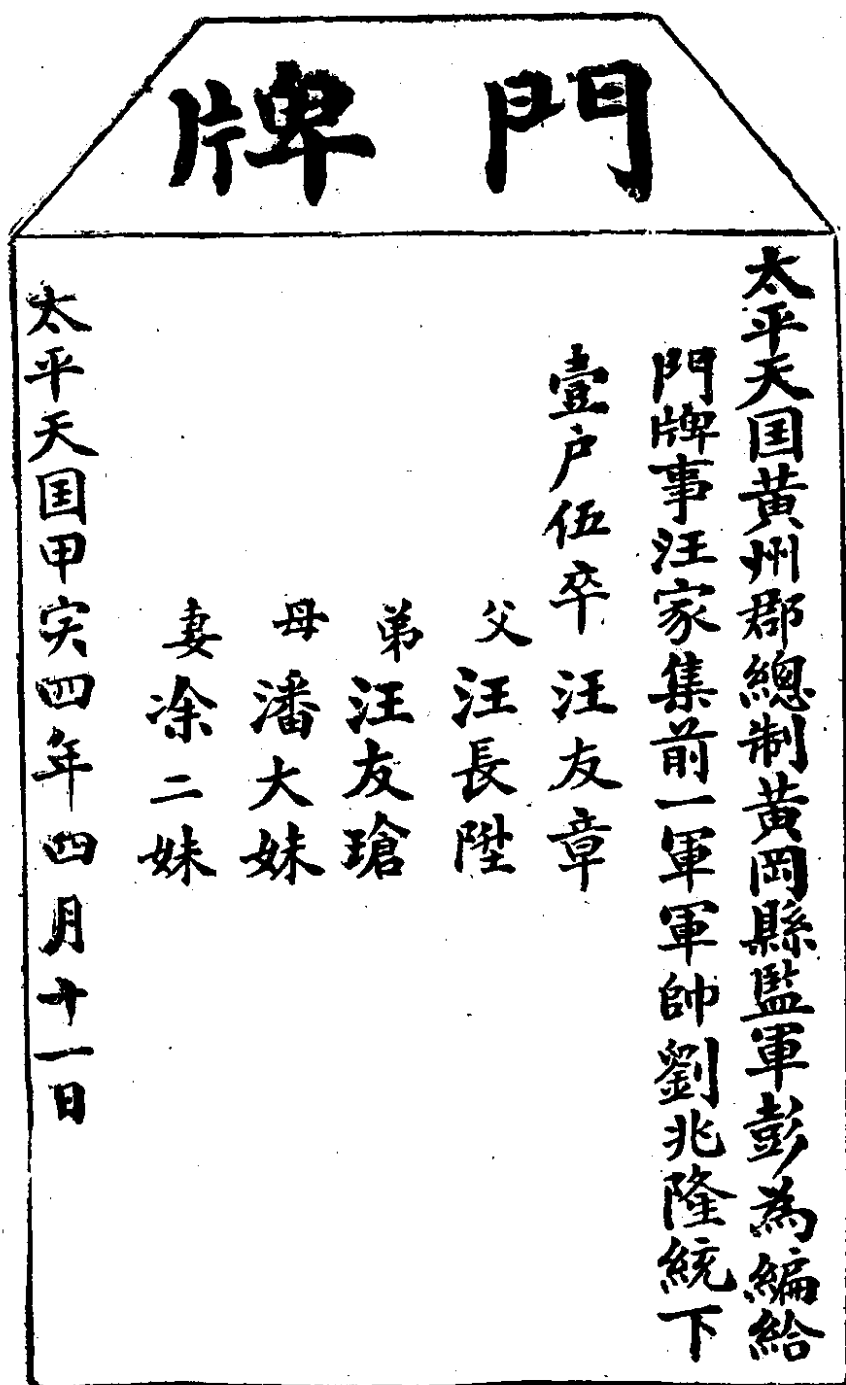 門牌
太平天囯黄州郡總制黄岡縣監軍彭為編給
門牌事汪家集前一軍軍帥劉兆隆統下
壹户伍卒汪友章
父汪長陞
弟汪友瑲
母潘大妹
妻凃二妹
太平天囯甲寅四年四月十一日